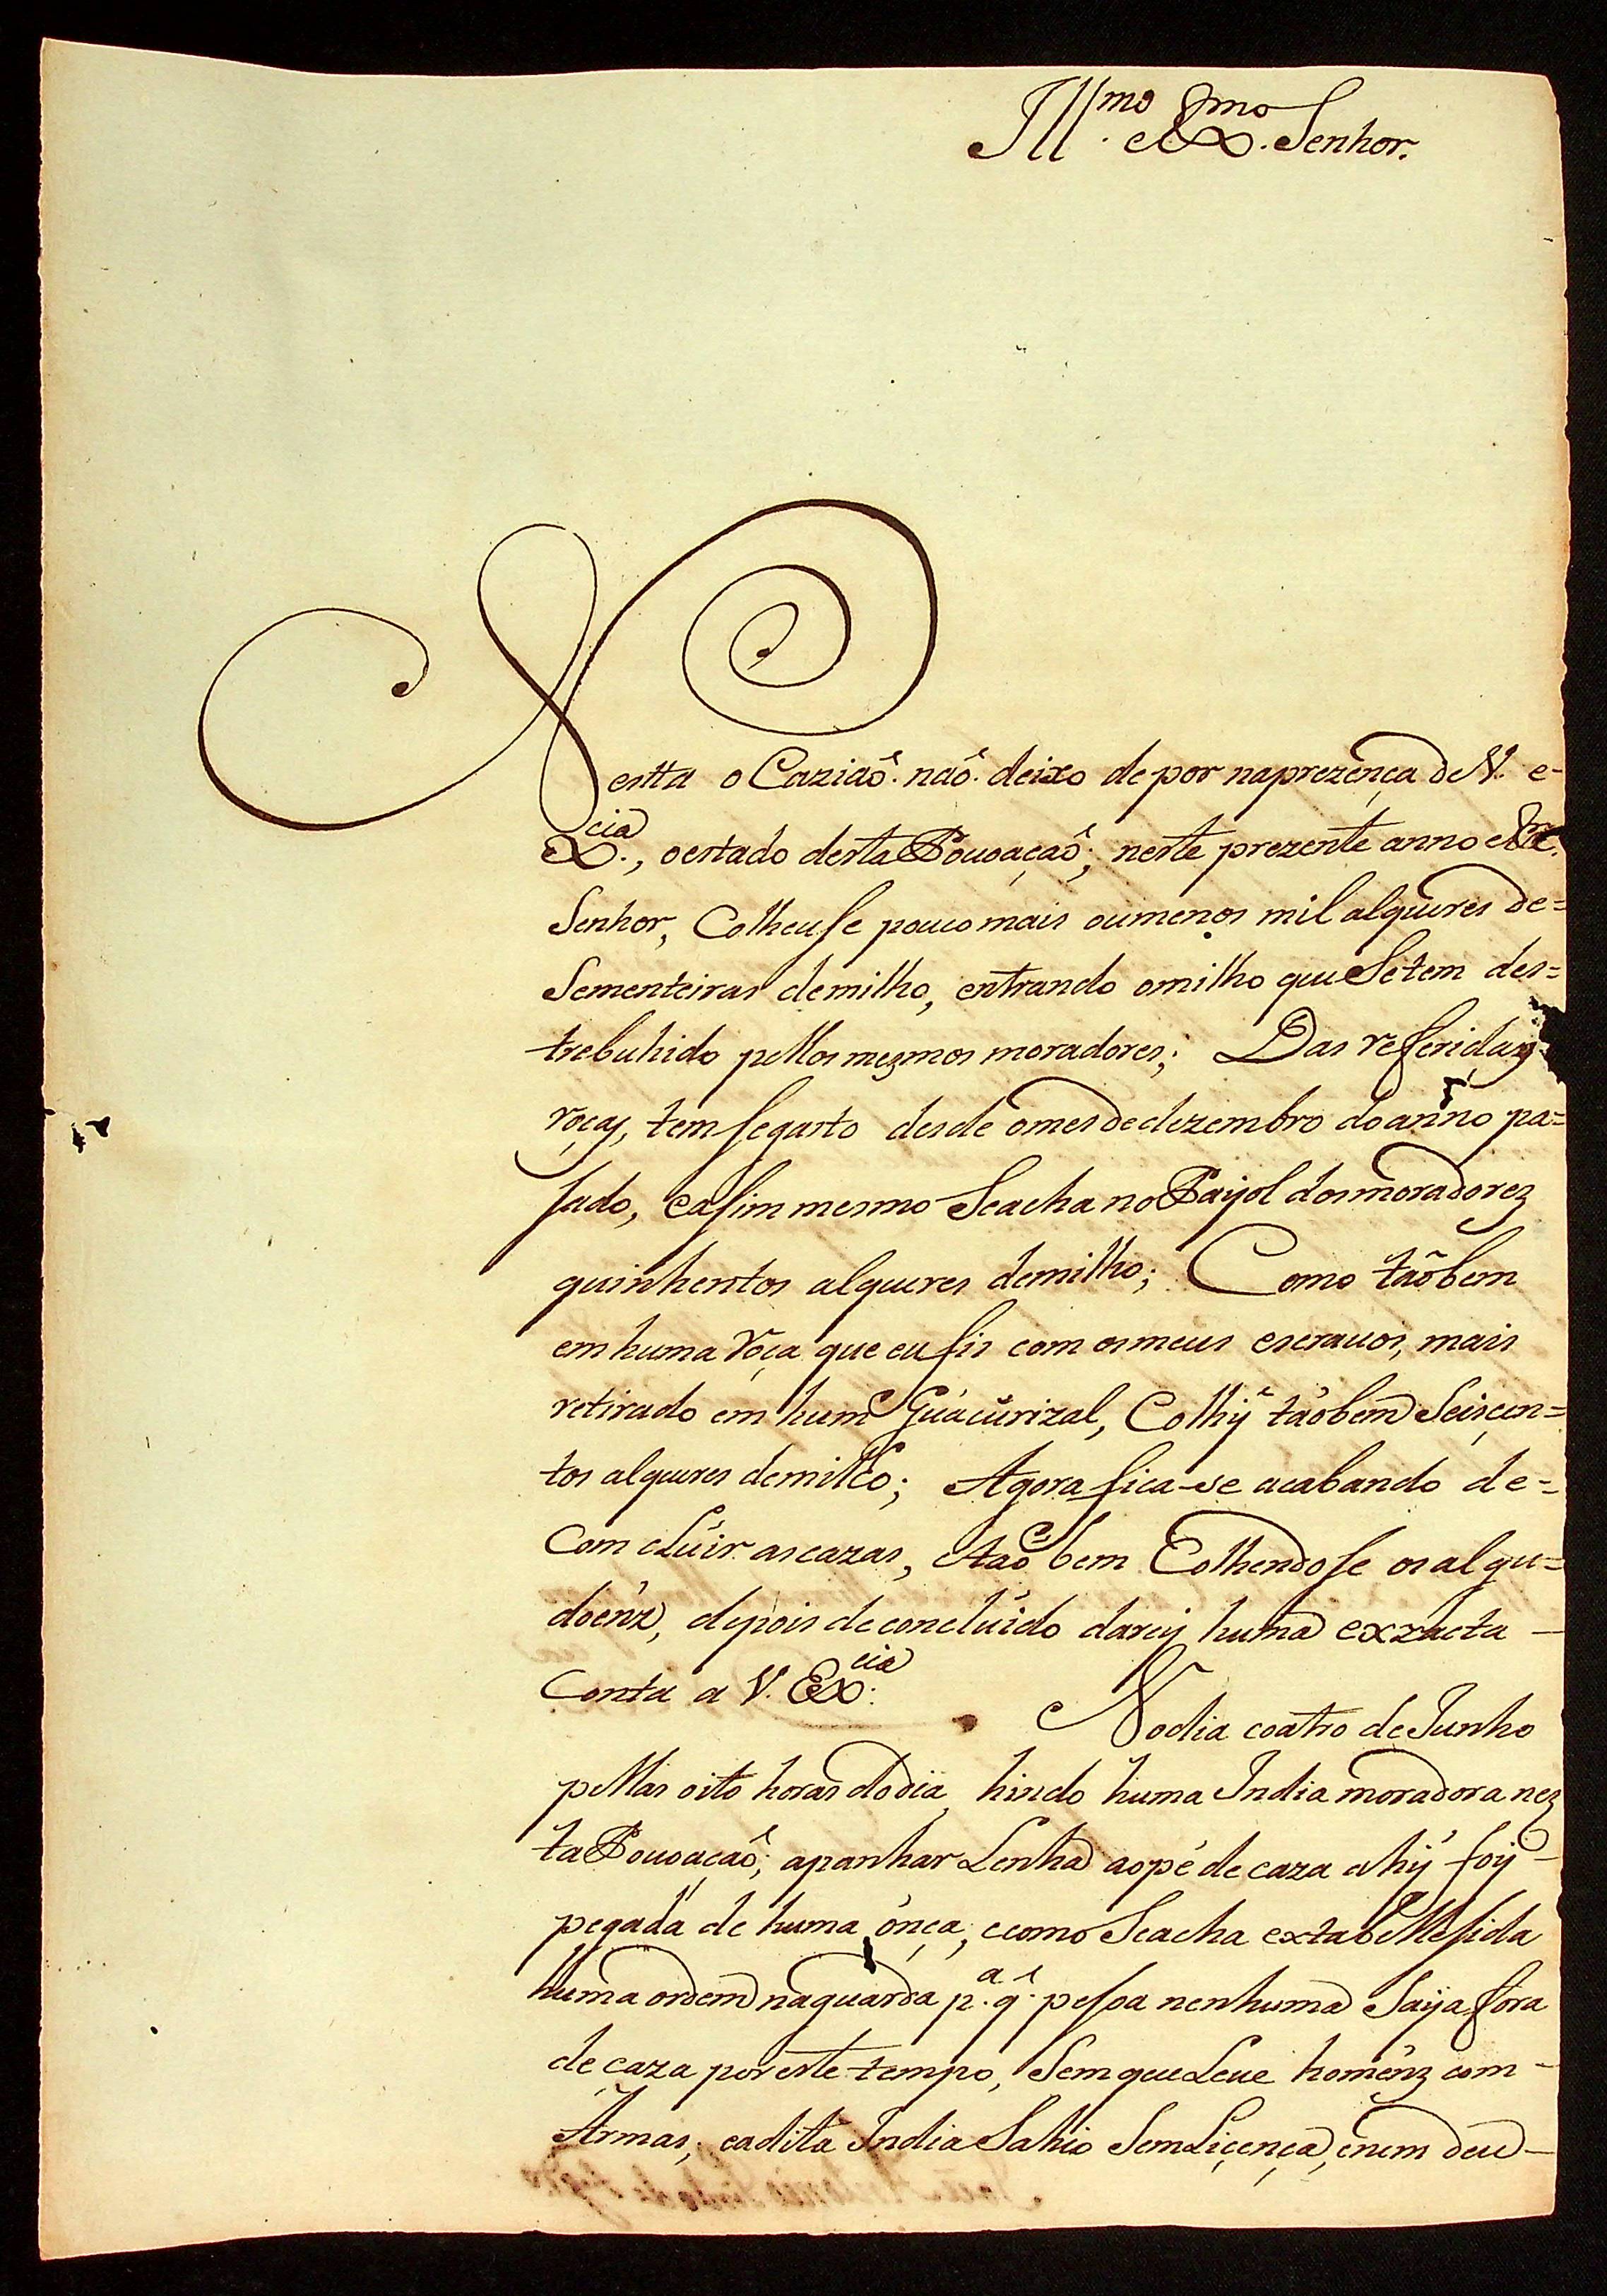 Ill.mo e Ex.mo Senhor.
Nesta o Caziaõ. naõ. deixo de por naprezença de V. e-
Ex.cia, oestado desta Pouoaçaõ; neste prezente anno
Senhor, Colheuse pouco mais oumenos mil alqueires de=
Sementeiras demilho, entrando omilho que Setem des=
trebuhido pellos mezmos moradores; Das referidas
roças, tem segasto desde omes de dezembro do anno pa=
sado, easim mesmo Seacha no Payol dos moradorez
quinhentos alqueres demilho; Como taõbem
em huma roça que eu fis com os meus escrauos, mais
retirado em hum Guacurizal, Colhÿ taõbem Seiscen=
tos alqueres demilho; Agora fica-se acabando de=
Com cluir as cazas, etaõ bem Colhendose os algu=
doenz, depois de concluido darey huma exzacta —
Conta a V. Ex.cia
Nodia coatro de Junho
pellas oito horas dodia, hindo huma India moradora nez
ta Pouoaçaõ; apanhar Lenha aopé de caza ahÿ foÿ —
pegada de huma ónça; ecomo Seacha extabellesida
huma ordem naguarda p.a q. pesoa nenhuma Saija fora
de caza poreste tempo, Sem que Leue homenz com —
Armas; eadita India Sahio Sem Liçença, enem deu —